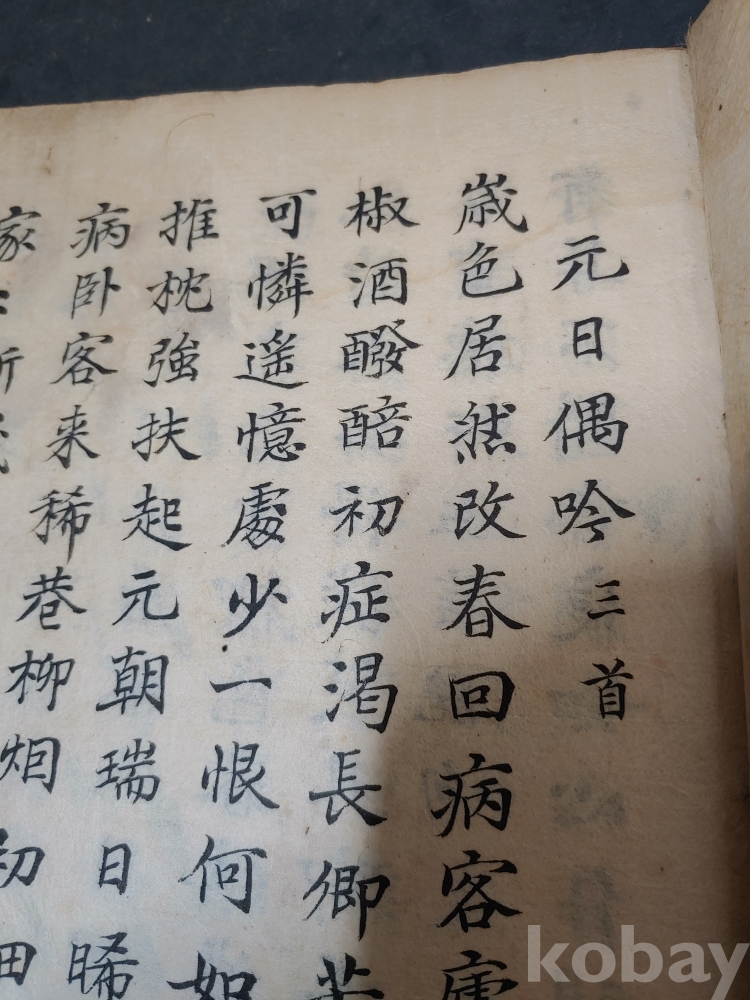 元日偶吟 三首
歲色居然改春回病客
椒酒醱醅初症渴長卿
可憐遥憶處少一恨何如
推枕強扶起元朝瑞日晞
病卧客来稀巷柳烟初
家
kobay